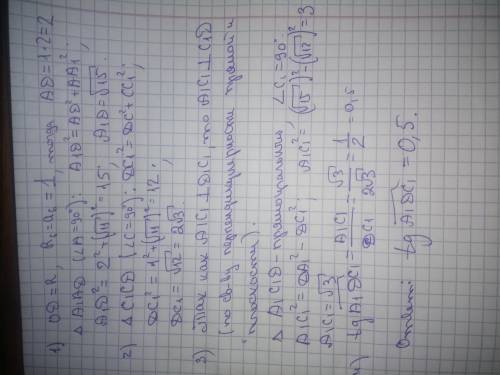 1) OD=R, R₆=a₆=1, тогда AD=1·2=2
△A₁AD (∠A=90°): A₁D²=AD²+AA₁²;
A₁D²=2²+(√11)²=15; A₁D=√15;
2) △C₁CD (∠C=90°): DC₁²=DC²+CC₁²;
DC₁²=1²+(√11)²=12;
DC₁=√12=2√3;
3) Так как A₁C₁⊥D₁C₁, то A₁C₁⊥C₁D
(по св-ву перпендикулярности прямой и
плоскости).
△A₁C₁D-прямоугольный, ∠C₁=90°
A₁C₁²=DA₁²-DC₁²; A₁C₁²=(√15)²-(√12)²=3
A₁C₁=√3
4) tg A₁DC₁=A₁C₁/DC₁=√3/2√3=1/2=0,5
Ответ: tg A₁DC₁=0,5.